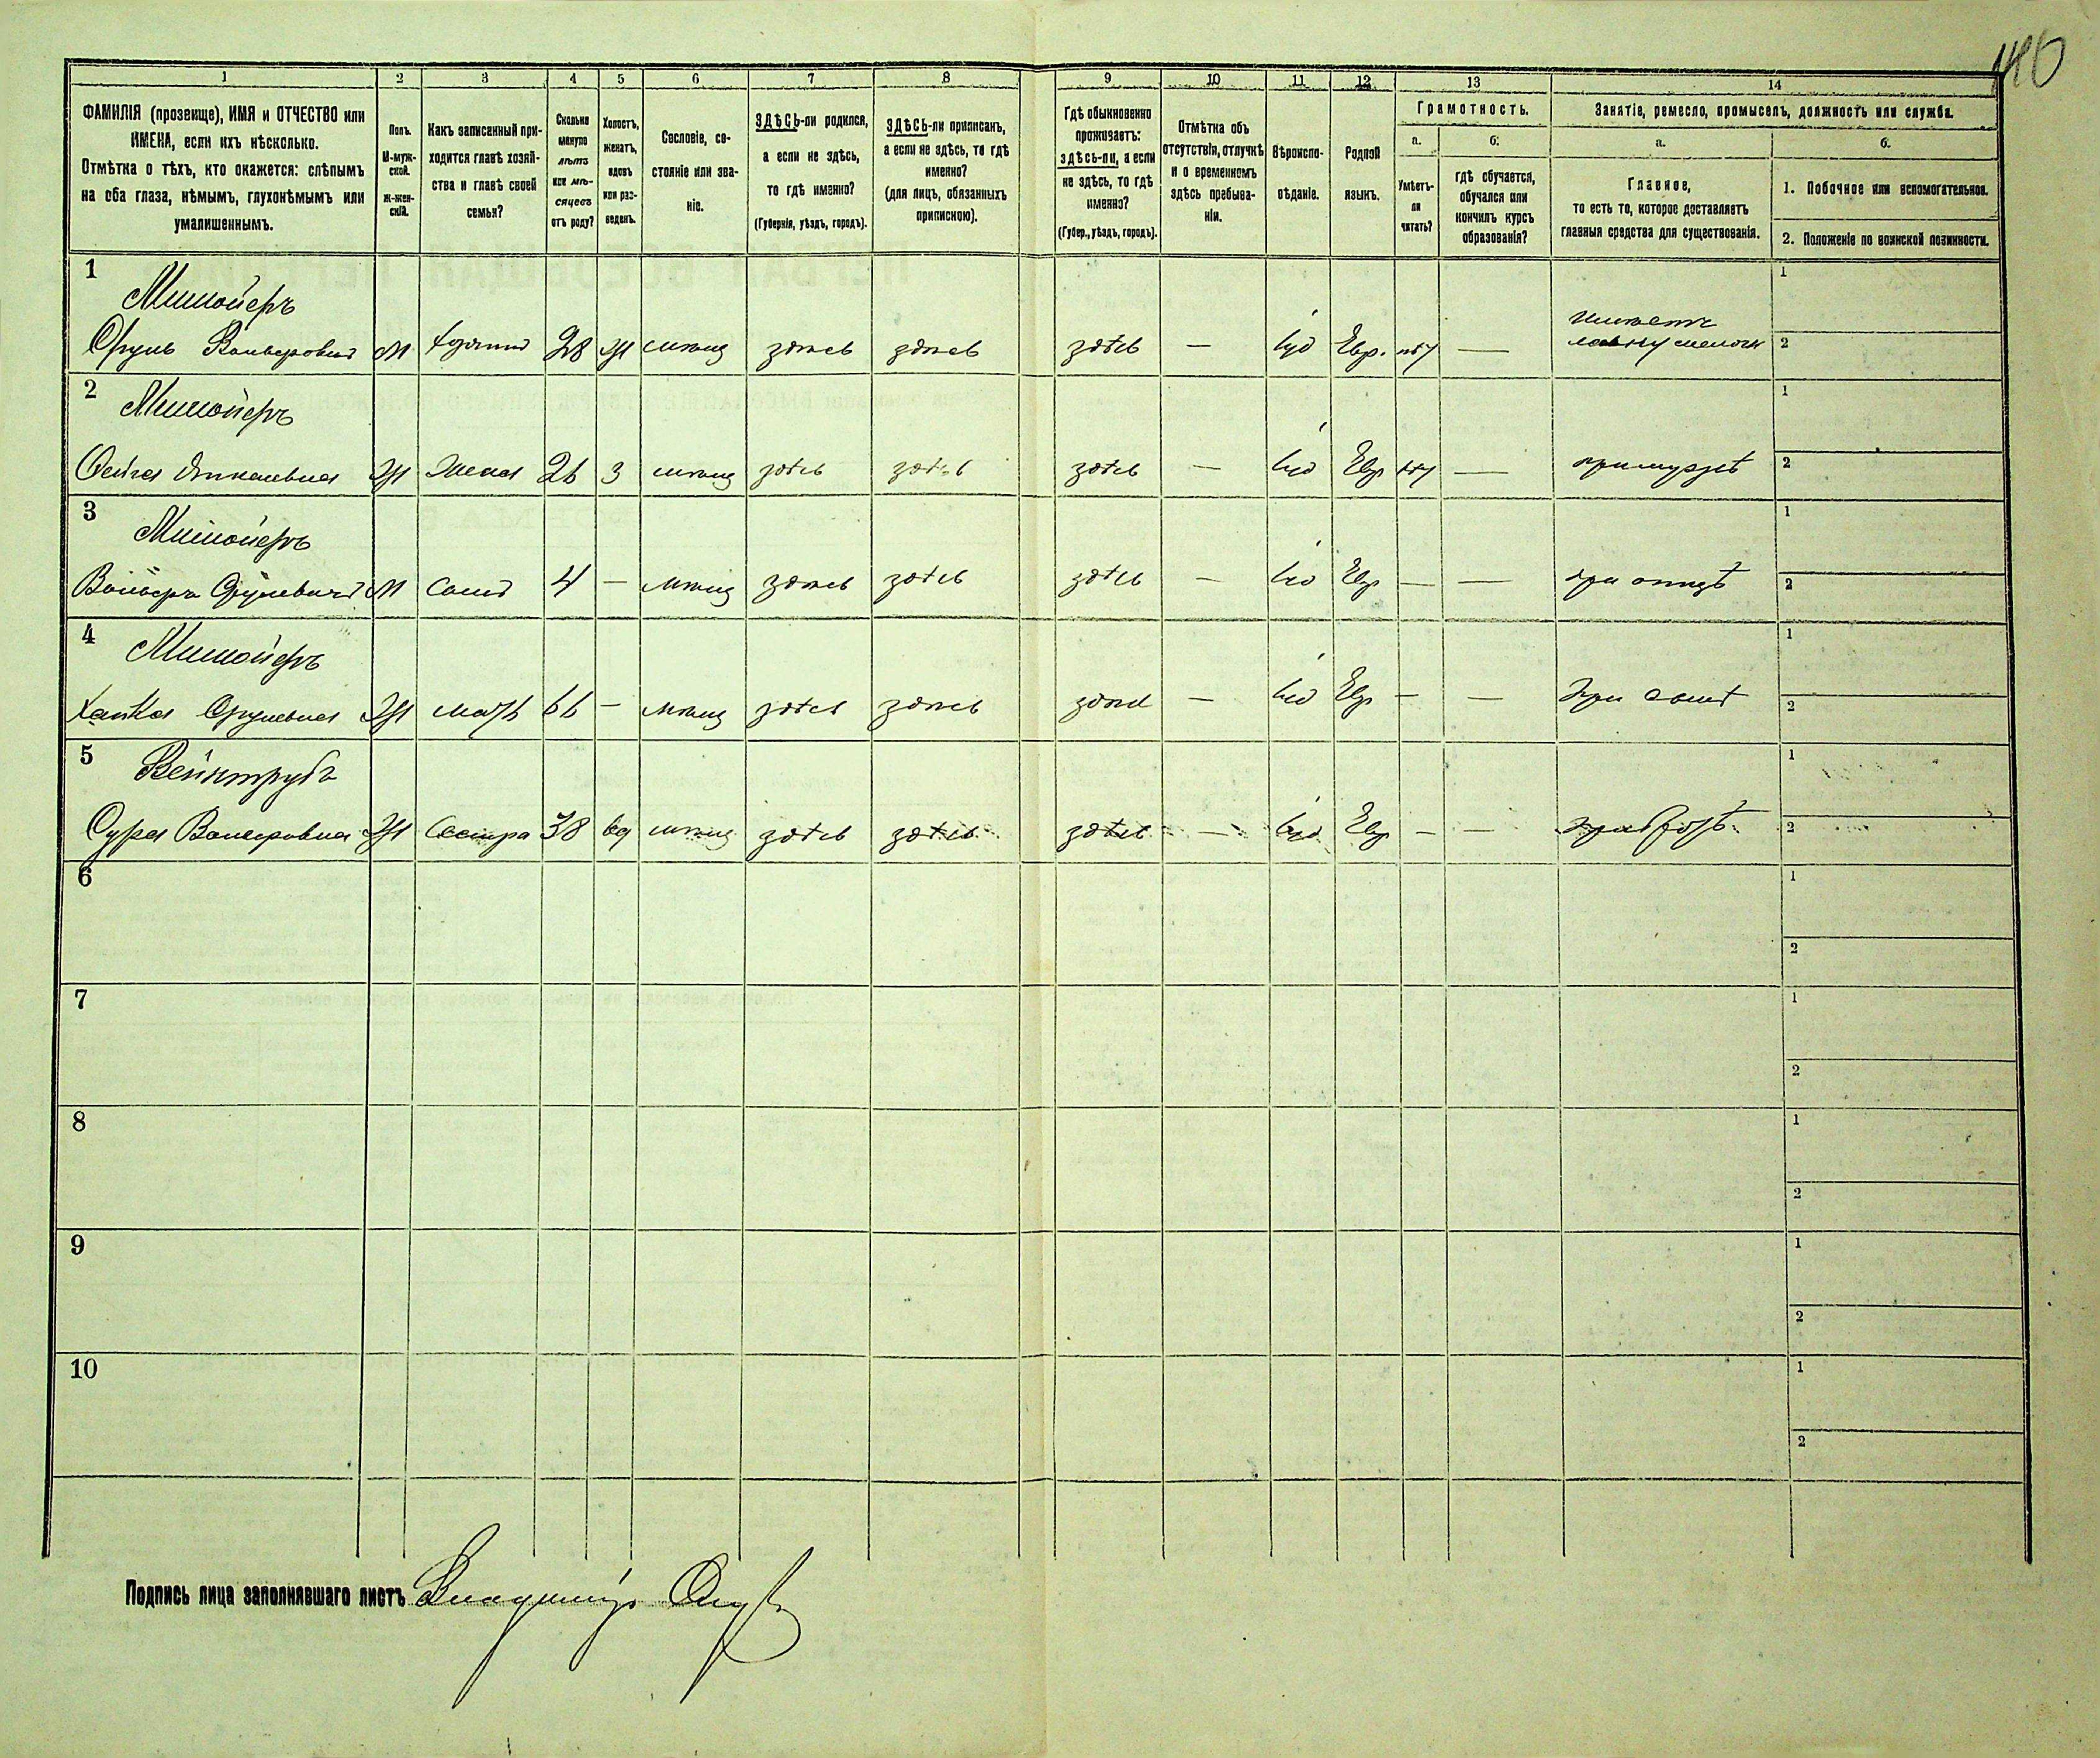 140
1 2 3 4 5 6 7 8 9 10 11 12 13 14
ФАМИЛІЯ (прозвище), ИМЯ и ОТЧЕСТВО или
ИМЕНА, если ихъ нѣсколько.
Отмѣтка о тѣхъ, кто окажется: слѣпымъ
на оба глаза, нѣмымъ, глухонѣмымъ или
умалишеннымъ.
Полъ.
М-муж-
ской.
Ж-жен-
скій.
Какъ записанный при-
ходится главѣ хозяй-
ства и главѣ своей
семьи?
Сколько
минуло
лѣтъ
или мѣ-
сяцевъ
отъ роду?
Холостъ,
женатъ,
вдовъ
или раз-
веденъ.
Сословіе, со-
стояніе или зва-
ніе.
ЗДѢСЬ-ли родился,
а если не здѣсь,
то гдѣ именно?
(Губернія, уѣздъ, городъ).
ЗДѢСЬ-ли приписанъ,
а если не здѣсь, то гдѣ
именно?
(для лицъ, обязанныхъ
припискою).
Гдѣ обыкновенно
проживаетъ:
здѣсь-ли, а если
не здѣсь, то гдѣ
именно?
(Губер., уѣздъ, городъ).
Отмѣтка объ
отсутствіи, отлучкѣ
и о временномъ
здѣсь пребыва-
ніи.
Вѣроиспо-
вѣданіе.
Родной
языкъ.
Грамотность.
а.
Умѣетъ-
ли
читать?
б.
гдѣ обучается,
обучался или
кончилъ курсъ
образованія?
Занятіе, ремесло, промыселъ, должность или служба.
а.
Главное,
то есть то, которое доставляетъ
главныя средства для существованія.
б.
1. Побочное или вспомогательное.
2. Положеніе по воинской повинности.
1
1
М 28 мѣщ здѣсь здѣсь здѣсь — Іуд Евр. —
2
2
1
Ж Жена 26 З мѣщ здѣсь здѣсь здѣсь — Іуд Евр — при мужѣ
2
3
1
М Сынъ 4 — мѣщ здѣсь здѣсь здѣсь — Іуд Евр — — при отцѣ
2
4
1
Ж мать 66 — мѣщ здѣсь здѣсь здѣсь — Іуд Евр — — при сынѣ
2
5
1
Сура Ж Сестра 38 вд мѣщ здѣсь здѣсь здѣсь — Іуд Евр — — при братѣ
2
6
1
2
7
1
2
8
1
2
9
1
2
10
1
2
Подпись лица заполнявшаго листъ Владиміръ